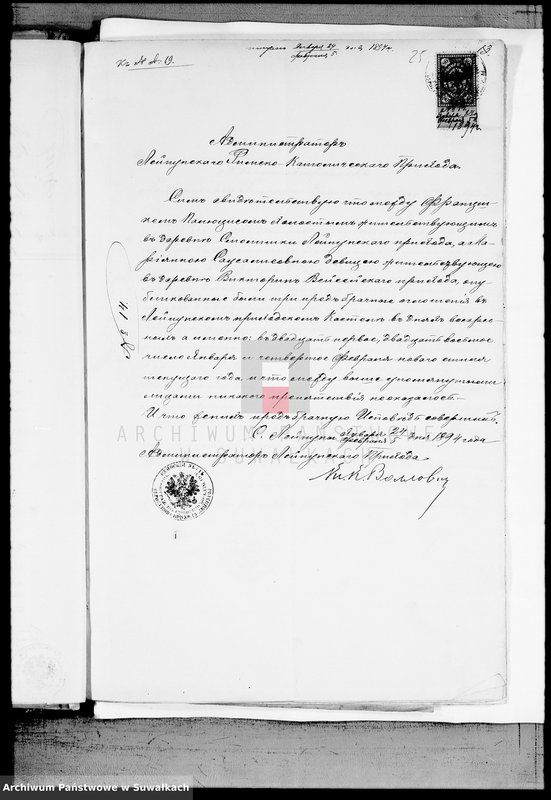 Къ А № 19.
Января 24
Февраля 5
1894 г.
25
53
Администраторъ
Лейпунскаго Римско-Католическаго Прихода.
Симъ свидѣтельствую что между Францишкомъ
холостымъ жительствующимъ
въ деревнѣ Лейпунскаго прихода, а Маріянною
дѣвицею жительствующею
въ деревнѣ Викторинъ Вейсейскаго прихода, опубликованные
были три предбрачные оглашенія въ
Лейпунскомъ приходскомъ Костелѣ въ дняхъ воскресныхъ
а именно: въ двадцать первое, двадцать восьмое
число Января и четвертое Февраля новаго стиля
текущаго года, и что между выше упомянутыми
лицами никакого препятствія неоказалось.
И что предбрачную Исповѣдь совершилъ.
С. Лейпуны Января 24 / Февраля 5 дня 1894 года
Администраторъ Лейпунскаго Прихода
№ 14
ARCHIWUM PAŃSTWOWE
W SUWAŁKACH
Archiwum Państwowe w Suwałkach